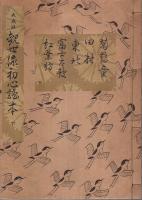 菊慈童
田村
東北
富士太鼓
紅葉狩
觀世流初心謠本